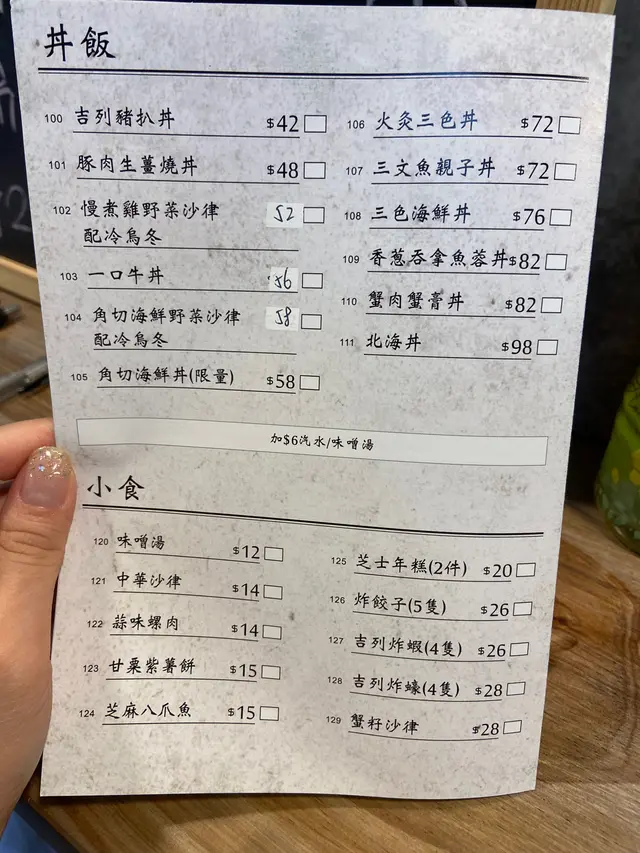 丼飯
100 吉列豬扒丼 $42
101 豚肉生薑燒丼 $48
102 慢煮雞野菜沙律 52
配冷烏冬
103 一口牛丼 56
104 角切海鮮野菜沙律 58
配冷烏冬
105 角切海鮮丼(限量) $58
106 火炙三色丼 $72
107 三文魚親子丼 $72
108 三色海鮮丼 $76
109 香葱吞拿魚蓉丼$82
110 蟹肉蟹膏丼 $82
111 北海丼 $98
加$6汽水/味噌湯
小食
120 味噌湯 $12
121 中華沙律 $14
122 蒜味螺肉 $14
123 甘栗紫薯餅 $15
124 芝麻八爪魚 $15
125 芝士年糕(2件) $20
126 炸餃子(5隻) $26
127 吉列炸蝦(4隻) $26
128 吉列炸蠔(4隻) $28
129 蟹籽沙律 $28